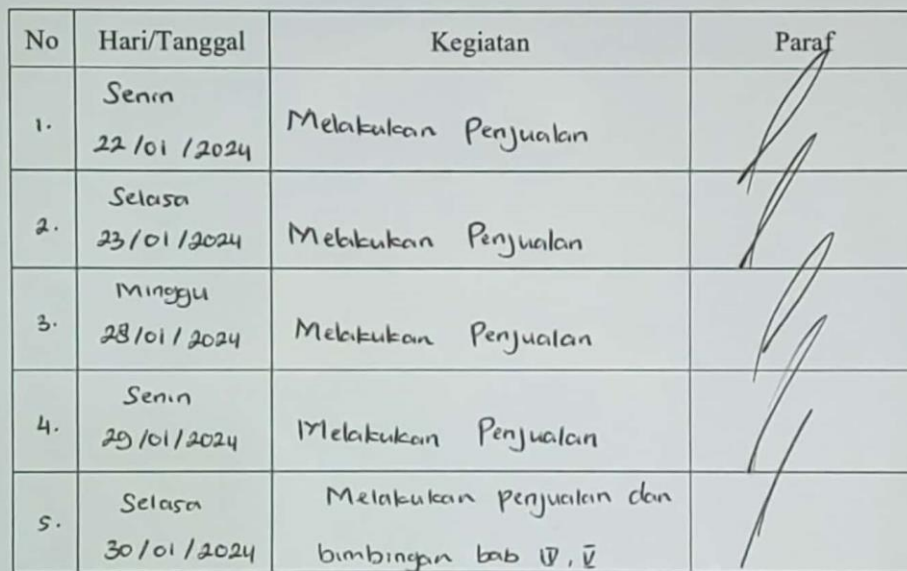 No Hari/Tanggal Kegiatan Paraf
1. Senin
22/01/2024 Melakukan Penjualan
2. Selasa
23/01/2024 Melakukan Penjualan
3. Minggu
28/01/2024 Melakukan Penjualan
4. Senin
29/01/2024 Melakukan Penjualan
5. Selasa Melakukan penjualan dan
30/01/2024 bimbingan bab IV, V